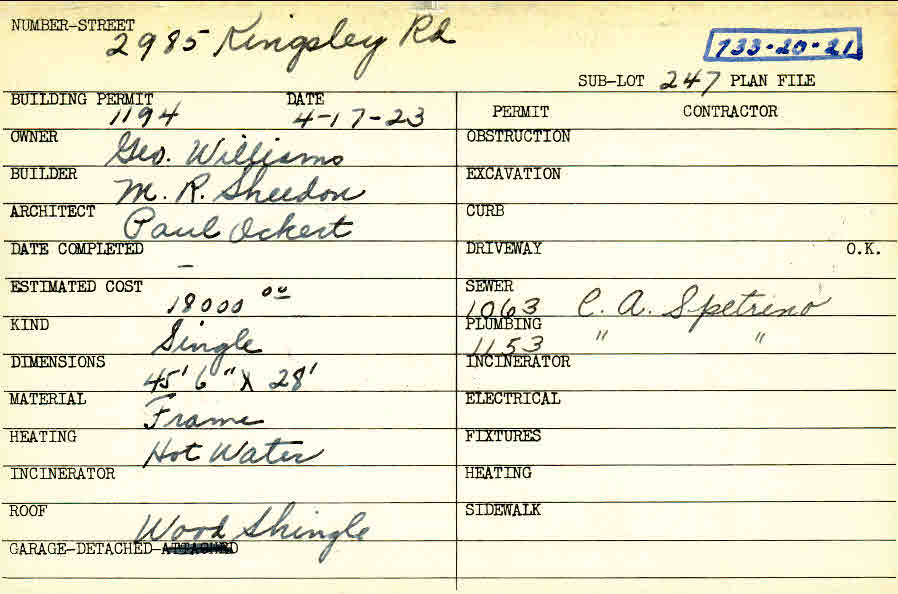 NUMBER-STREET
2985 Kingsley Rd
733-20-21
SUB-LOT 247 PLAN FILE
BUILDING PERMIT DATE
1194 4-17-23
PERMIT CONTRACTOR
OWNER
Geo. Williams
OBSTRUCTION
BUILDER
M. R. Sheedon
EXCAVATION
ARCHITECT
Paul Ockert
CURB
DATE COMPLETED
–
DRIVEWAY O.K.
ESTIMATED COST
18000 00
SEWER
1063 C. A. Spetrino
KIND
Single
PLUMBING
1153 " "
DIMENSIONS
45' 6" X 28'
INCINERATOR
MATERIAL
Frame
ELECTRICAL
HEATING
Hot Water
FIXTURES
INCINERATOR
HEATING
ROOF
Wood Shingle
SIDEWALK
GARAGE-DETACHED-ATTACHED